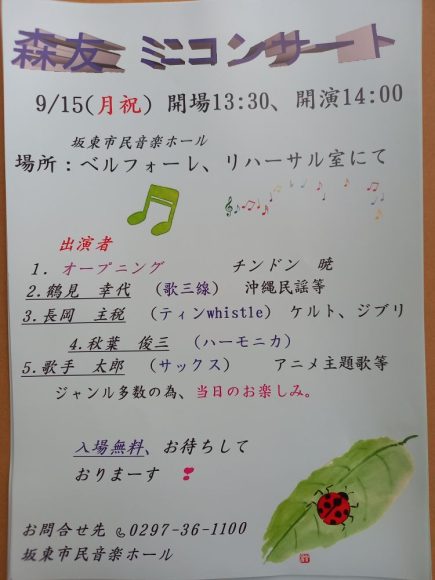 森友 ミニコンサート
9/15(月祝) 開場13:30、開演14:00
坂東市民音楽ホール
場所：ベルフォーレ、リハーサル室にて
出演者
1. オープニング チンドン 暁
2.鶴見 幸代 （歌三線） 沖縄民謡等
3.長岡 主税 （ティンwhistle） ケルト、ジブリ
4.秋葉 俊三 （ハーモニカ）
5.歌手 太郎 （サックス） アニメ主題歌等
ジャンル多数の為、当日のお楽しみ。
入場無料、お待ちして
おりまーす ❣
お問合せ先 ☎0297-36-1100
坂東市民音楽ホール